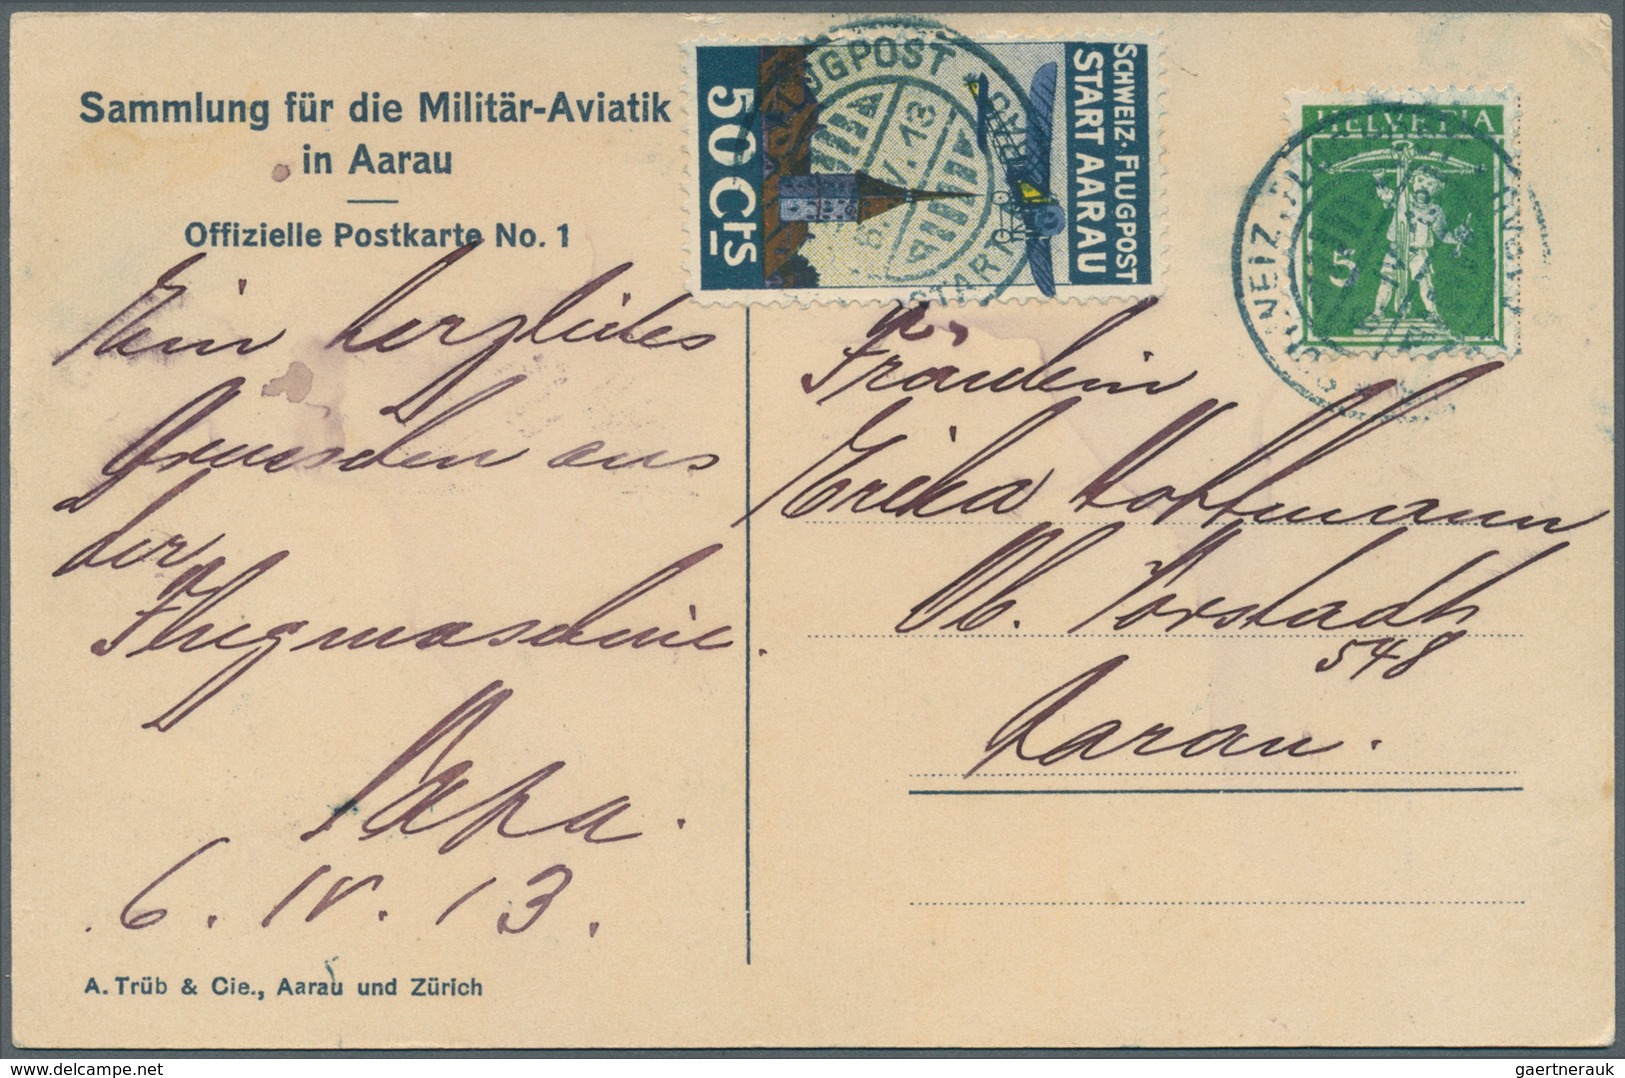 Sammlung für die Militär-Aviatik
in Aarau
Offizielle Postkarte No. 1
SCHWEIZ. FLUGPOST
START AARAU
50 Cts
FLUGPOST
START
HELVETIA
5
Ein herzliches
Gruesschen aus
der
Flugmaschine.
Papa.
6. IV. 13.
Fräulein
Erika Hoffmann
Ob. Vorstadt
548
Aarau.
A. Trüb & Cie., Aarau und Zürich
gaertnerauk